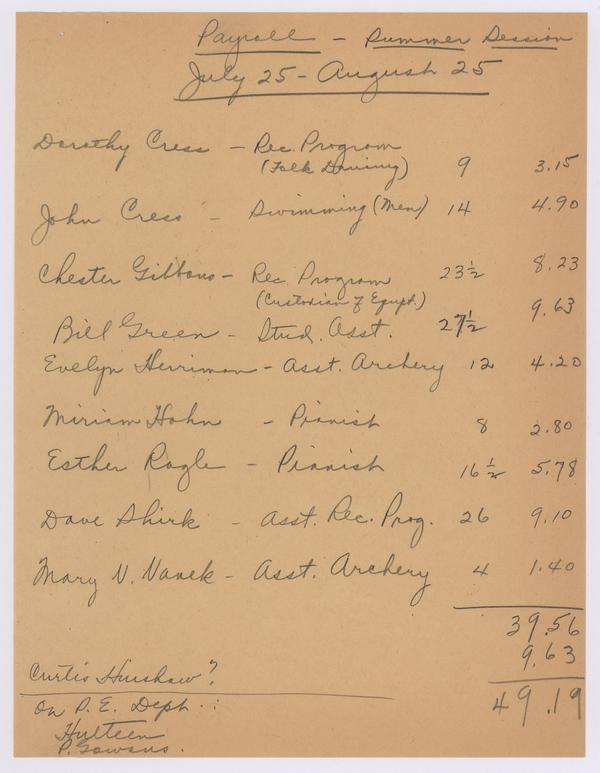 Payroll - Summer Session
July 25 - August 25
Dorothy Cress - Rec. Program
(Folk Dancing) 9 3.15
John Cress - Swimming (Men) 14 4.90
Chester Gibbons - Rec. Program 23 1/2 8.23
(Custodian of Equipt.)
Bill Green - Stud. Asst. 27 1/2 9.63
Evelyn Herriman - Asst. Archery 12 4.20
Miriam Hahn - Pianist 8 2.80
Esther Ragle - Pianist 16 1/2 5.78
Dave Shirk - Asst. Rec. Prog. 26 9.10
Mary V. Vanek - Asst. Archery 4 1.40
39.56
9.63
49.19
Curtis Hinshaw?
On P. E. Dept. :
Hulteen
P. Gowans.